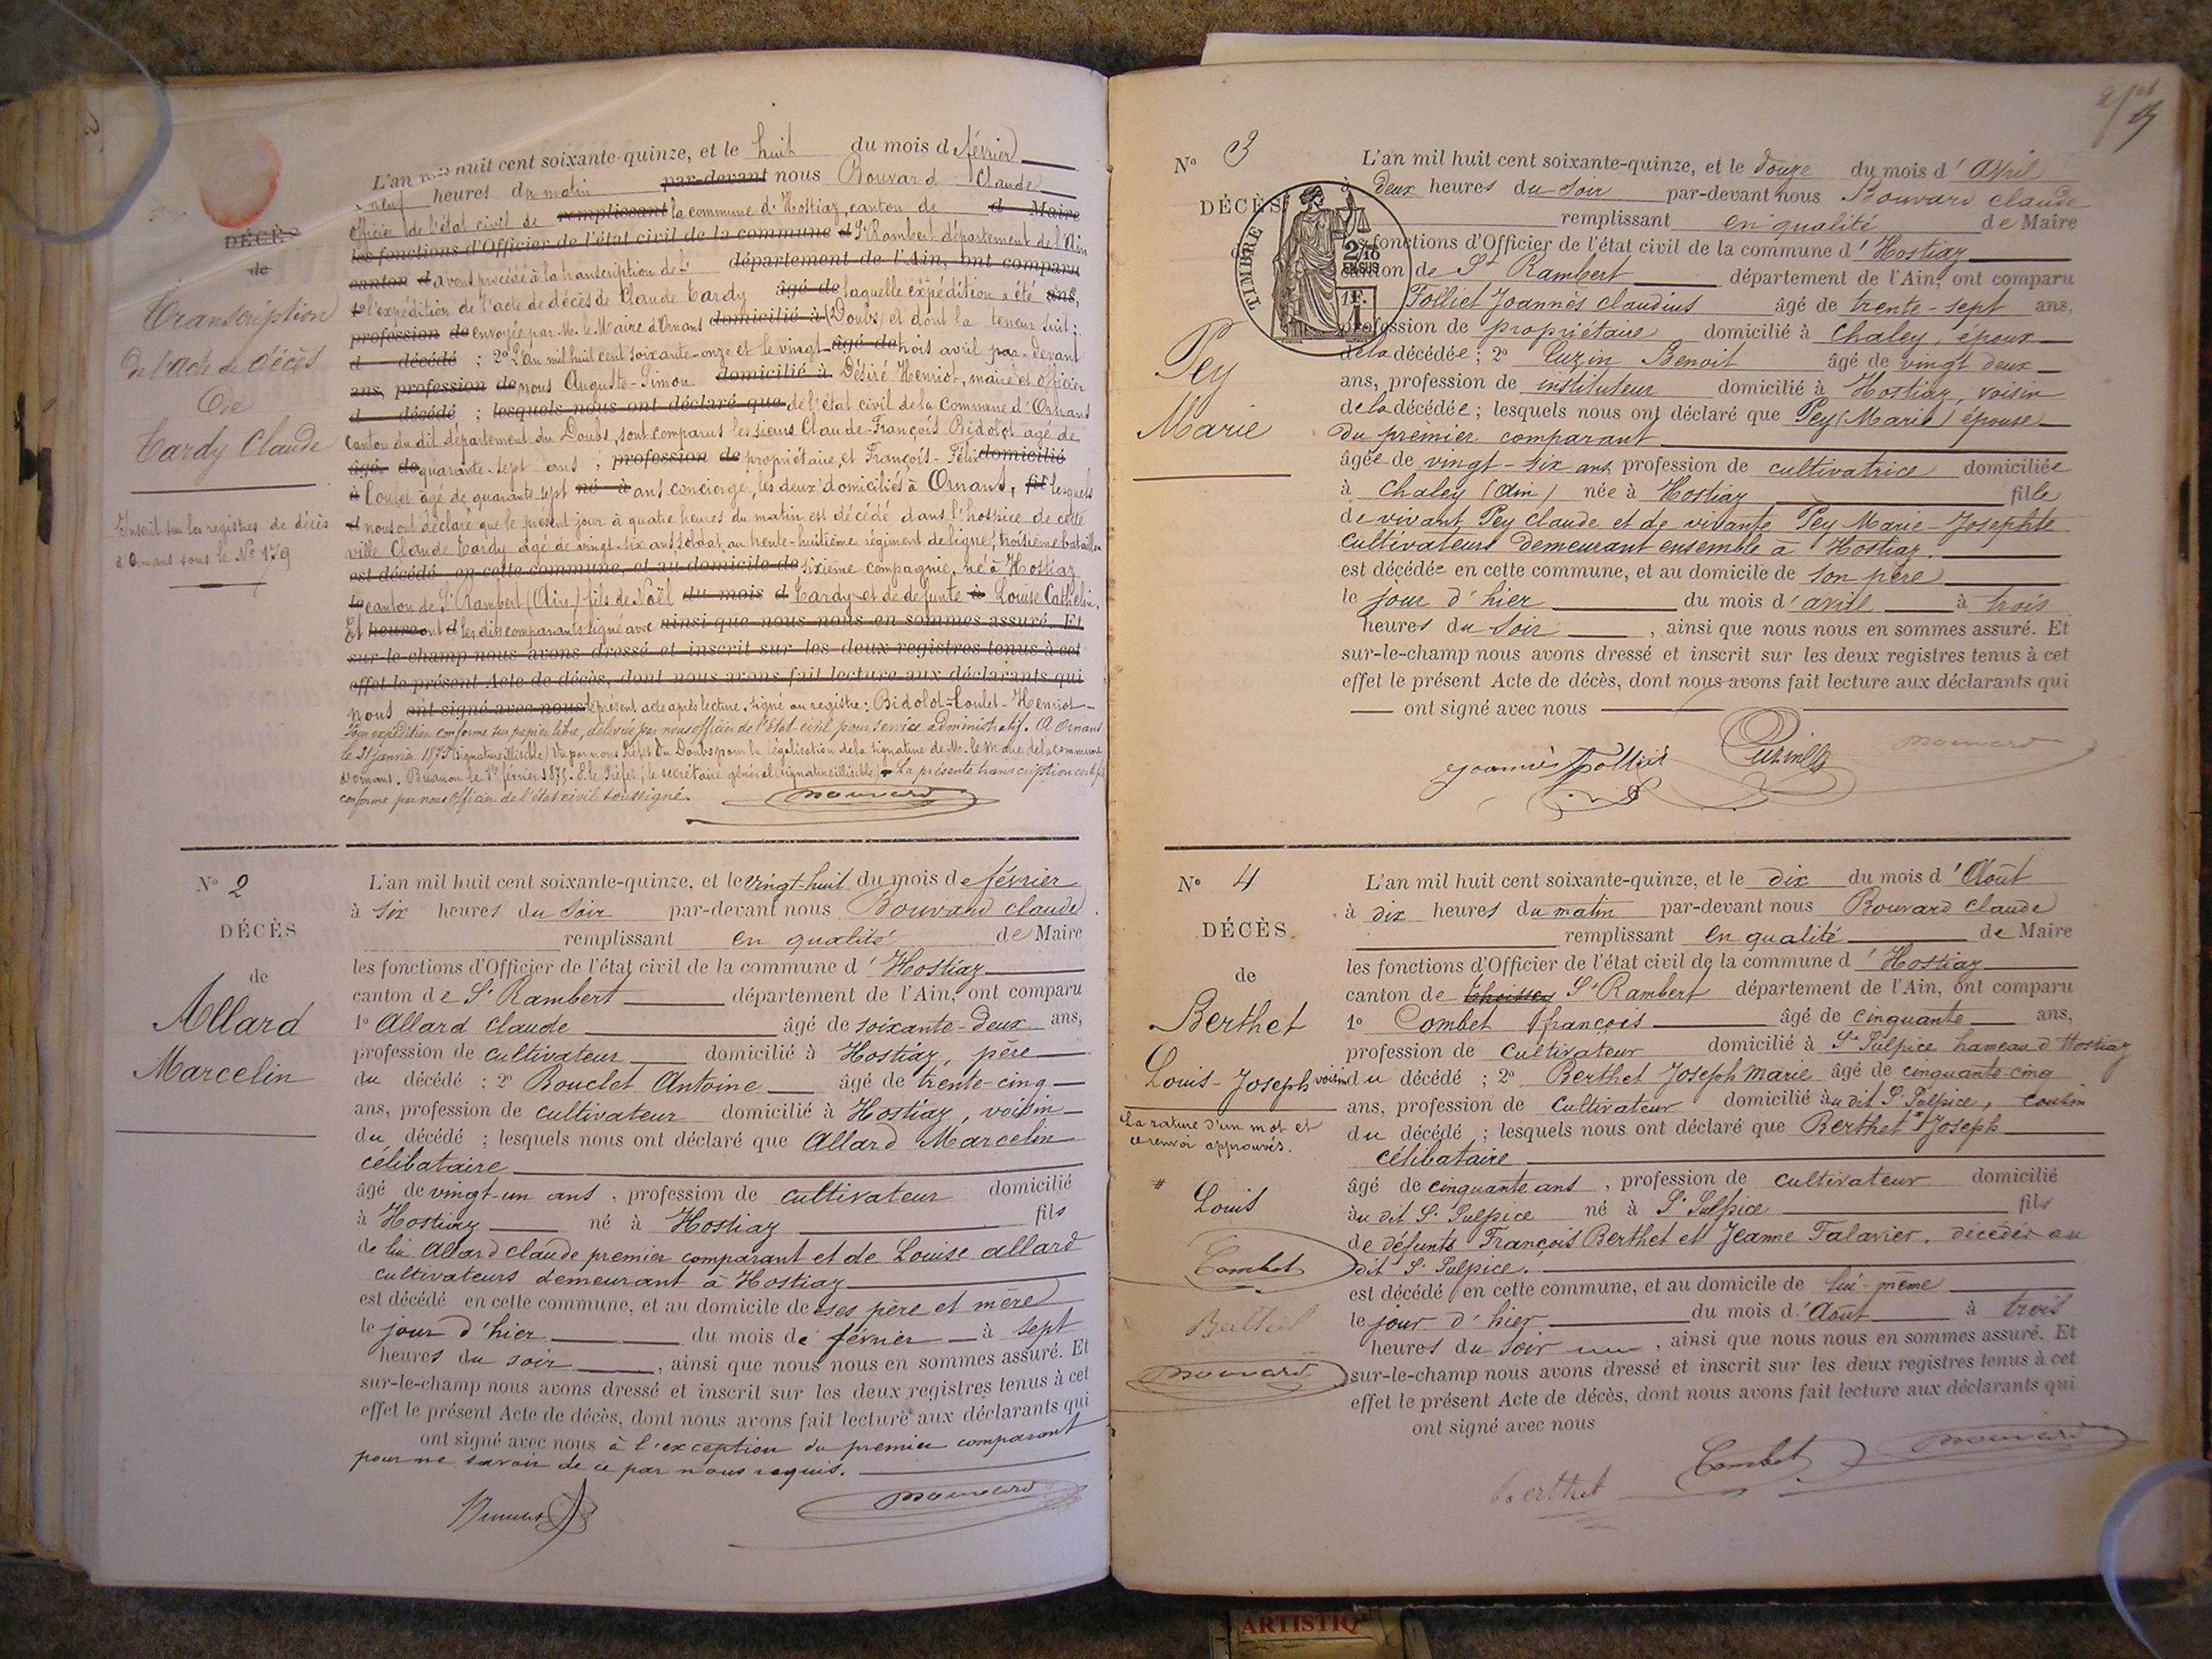 L'an mil huit cent soixante-quinze, et le huit du mois d février
neuf heures du matin par-devant nous Bouvard Claude
Officier de l'état civil de remplissant la commune d'Hostiaz, canton de d Maire
les fonctions d'Officier de l'état civil de la commune d St Rambert département de l'Ain
canton d avons procédé à la transcription de l' département de l'Ain, ont comparu
1o l'expédition de l'acte de décès de Claude Tardy âgé de laquelle expédition a été ans,
profession de envoyée par M. le Maire d'Ornans domicilié à (Doubs) et dont la teneur suit :
d décédé ; 2o L'an mil huit cent soixante-onze et le vingt âgé de trois avril par-devant
ans, profession de nous Auguste-Simon domicilié à Désiré Henriot, maire et officier
d décédé ; lesquels nous ont déclaré que de l'état civil de la Commune d'Ornans
Canton du dit département du Doubs, sont comparus les sieurs Claude-François Bidolot agé de
âgé de quarante-sept ans ; profession de propriétaire, et François-Félix domicilié
à Coulet agé de quarante-sept né à ans concierge, les deux domiciliés à Ornans, fil lesquels
et nous ont déclaré que le présent jour à quatre heures du matin est décédé dans l'hospice de cette
ville Claude Tardy agé de vingt-six ans soldat au trente-huitième régiment de ligne, troisième bataillon
est décédé en cette commune, et au domicile de sixième compagnie, né à Hostiaz
le canton de St Rambert (Ain) fils de Noël du mois d Tardy et de défunte à Louise Cathelin.
Et heure ont d les dits comparants signé avec ainsi que nous nous en sommes assuré. Et
sur-le-champ nous avons dressé et inscrit sur les deux registres tenus à cet
effet le présent Acte de décès, dont nous avons fait lecture aux déclarants qui
nous ont signé avec nous le présent acte après lecture. Signé au registre : Bidolot-Coulet-Henriot-
Pour expédition conforme sur papier libre, délivrée par nous officier de l'état-civil pour service administratif. A Ornans
le 31 janvier 1875 (signature illisible) Vu par nous Préfet du Doubs pour la légalisation de la signature de M. le Maire de la commune
d'Ornans. le 1er février 1875. P. le Préfet ; le secrétaire général (signature illisible) - La présente transcription certifiée
conforme par nous Officier de l'état civil soussigné.
Bouvard
DÉCÈS
de
Transcription
de l'acte de décès
De
Tardy Claude
Inscrit sur les registres de décès
d'Ornans sous le No 179
No 2
DÉCÈS
de
Allard
Marcelin
L'an mil huit cent soixante-quinze, et le vingt-huit du mois de février
à six heures du soir par-devant nous Bouvard Claude
remplissant en qualité de Maire
les fonctions d'Officier de l'état civil de la commune d'Hostiaz
canton de St Rambert département de l'Ain, ont comparu
1o Allard Claude âgé de soixante-deux ans,
profession de cultivateur domicilié à Hostiaz, père
du décédé ; 2o Bouclet Antoine âgé de trente-cinq
ans, profession de cultivateur domicilié à Hostiaz, voisin
du décédé ; lesquels nous ont déclaré que Allard Marcelin
célibataire
âgé de vingt-un ans, profession de cultivateur domicilié
à Hostiaz né à Hostiaz fils
de lui Allard Claude premier comparant et de Louise Allard
cultivateurs demeurant à Hostiaz
est décédé en cette commune, et au domicile de ses père et mère
le jour d'hier du mois de février à sept
heures du soir, ainsi que nous nous en sommes assuré. Et
sur-le-champ nous avons dressé et inscrit sur les deux registres tenus à cet
effet le présent Acte de décès, dont nous avons fait lecture aux déclarants qui
ont signé avec nous à l'exception du premier comparant
pour ne savoir de ce par nous requis.
Bouvard
2/
No 3
DÉCÈS
TIMBRE
2/10
EN SUS
1F.
Pey
Marie
L'an mil huit cent soixante-quinze, et le douze du mois d'Avril
à deux heures du soir par-devant nous Bouvard Claude
remplissant en qualité de Maire
les fonctions d'Officier de l'état civil de la commune d'Hostiaz
canton de St Rambert département de l'Ain, ont comparu
Folliet Joannès Claudius âgé de trente-sept ans,
profession de propriétaire domicilié à Chaley, époux
de la décédée ; 2o Cuzin Benoit âgé de vingt deux
ans, profession de instituteur domicilié à Hostiaz, voisin
de la décédée ; lesquels nous ont déclaré que Pey (Marie) épouse
du premier comparant
âgée de vingt-six ans, profession de cultivatrice domiciliée
à Chaley (Ain) née à Hostiaz fille
de vivant Pey Claude et de vivante Pey Marie-Josephte
cultivateurs demeurant ensemble à Hostiaz.
est décédée en cette commune, et au domicile de son père
le jour d'hier du mois d'avril à trois
heures du soir, ainsi que nous nous en sommes assuré. Et
sur-le-champ nous avons dressé et inscrit sur les deux registres tenus à cet
effet le présent Acte de décès, dont nous avons fait lecture aux déclarants qui
ont signé avec nous
Joannès Folliet Cuzin Bouvard
No 4
DÉCÈS
de
Berthet
Louis-Joseph
La rature d'un mot et
ce renvoi approuvés.
# Louis
Combet
Berthet
Bouvard
L'an mil huit cent soixante-quinze, et le dix du mois d'Août
à dix heures du matin par-devant nous Bouvard Claude
remplissant en qualité de Maire
les fonctions d'Officier de l'état civil de la commune d'Hostiaz
canton de Thoissey St Rambert département de l'Ain, ont comparu
1o Combet François âgé de cinquante ans,
profession de cultivateur domicilié à St Sulpice hameau d'Hostiaz
voisin du décédé ; 2o Berthet Joseph Marie âgé de cinquante-cinq
ans, profession de cultivateur domicilié au dit St Sulpice, cousin
du décédé ; lesquels nous ont déclaré que Berthet # Joseph
célibataire
âgé de cinquante ans, profession de cultivateur domicilié
au dit St Sulpice né à St Sulpice fils
de défunts François Berthet et Jeanne Talavier, décédés au
dit St Sulpice.
est décédé en cette commune, et au domicile de lui-même
le jour d'hier du mois d'Août à trois
heures du soir, ainsi que nous nous en sommes assuré. Et
sur-le-champ nous avons dressé et inscrit sur les deux registres tenus à cet
effet le présent Acte de décès, dont nous avons fait lecture aux déclarants qui
ont signé avec nous
Berthet Combet Bouvard
ARTISTIQ